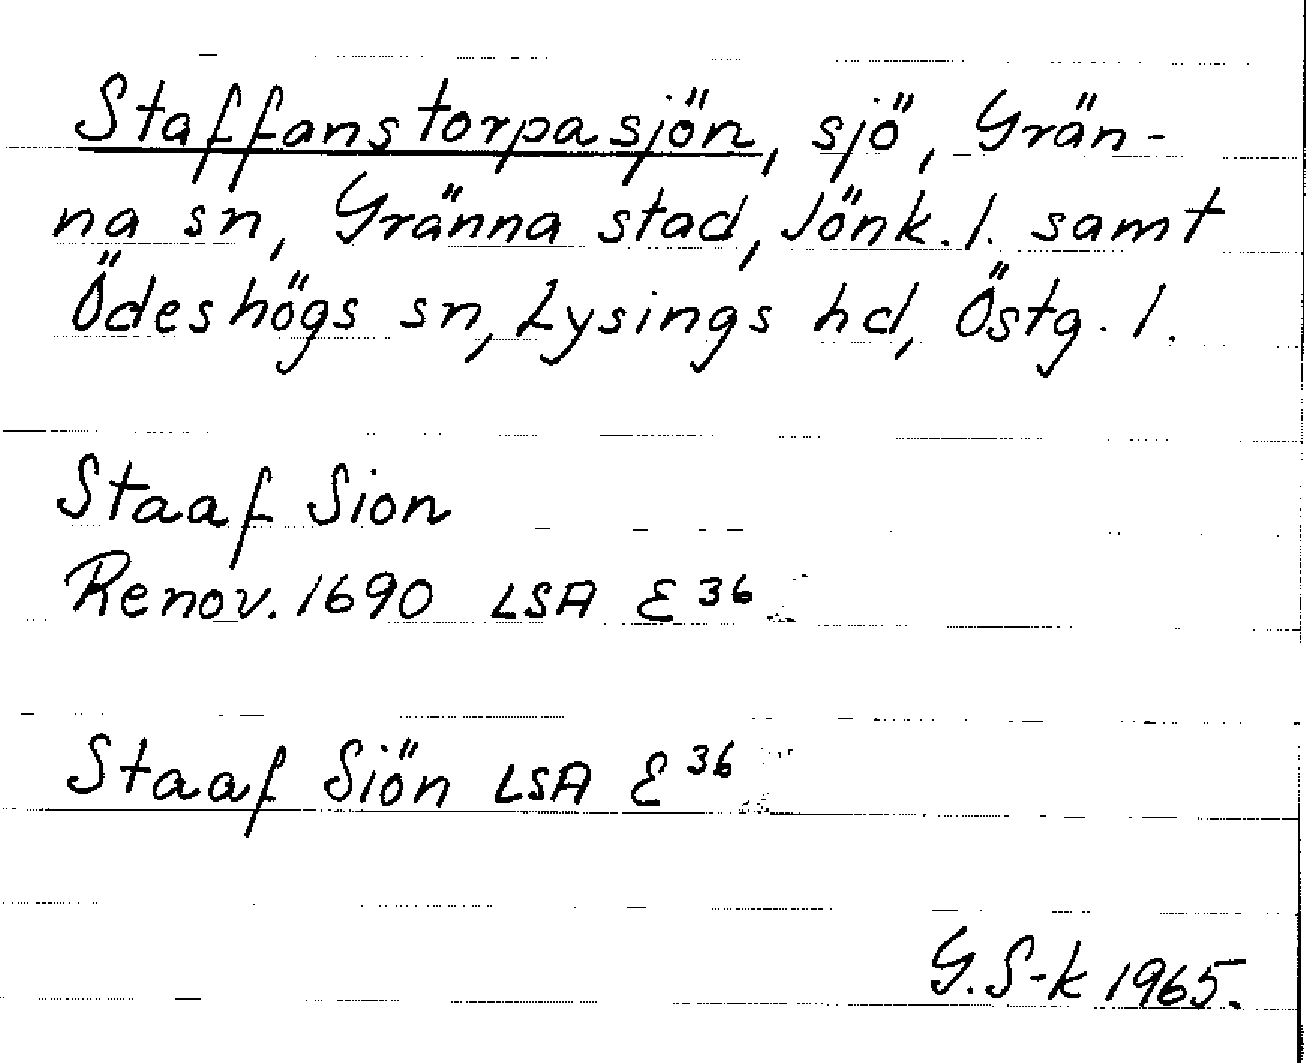 Staffanstorpasjön, sjö, Grän-
na sn, Gränna stad, Jönk. l. samt
Ödeshögs sn, Lysings hd, Östg. l.
Staaf Sion
Renov. 1690 LSA E 36
Staaf Siön LSA E 36
G. S-k 1965.